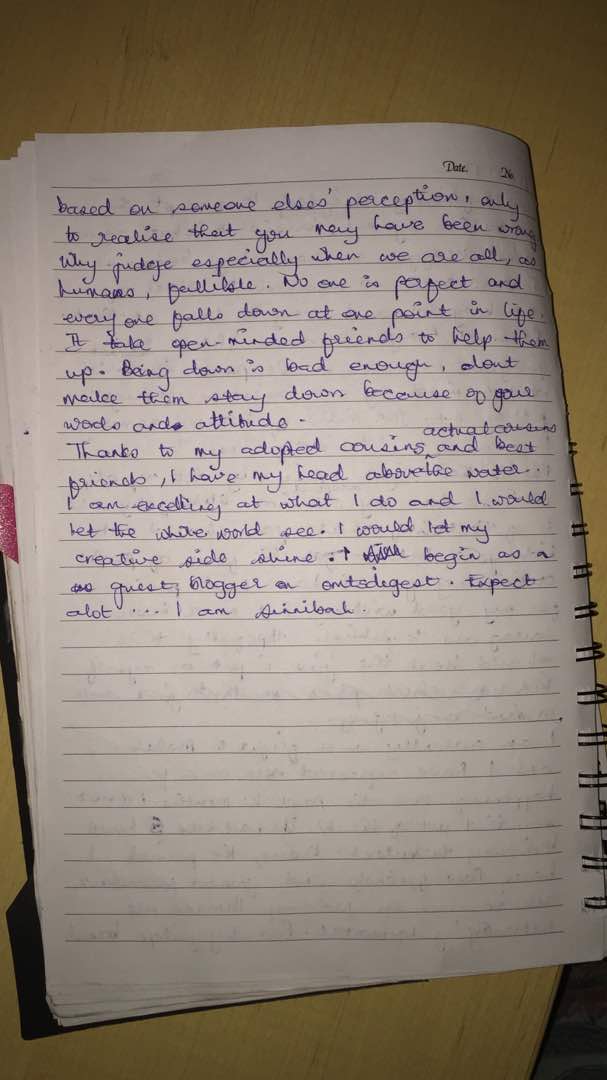 Date. No
based on someone elses' perception, only
to realise that you may have been wrong
Why judge especially when we are all, as
humans, fallible. No one is perfect and
every one falls down at one point in life.
It take open-minded friends to help them
up. Being down is bad enough, dont
make them stay down because of your
words and attitude.
actual cousins
Thanks to my adopted cousins, and best
friends, I have my head above the water.
I am excelling at what I do and I would
let the world see. I would let my
creative side shine. I begin as a
guest blogger on omtsdigest. Expect
alot ... I am sinnibah.